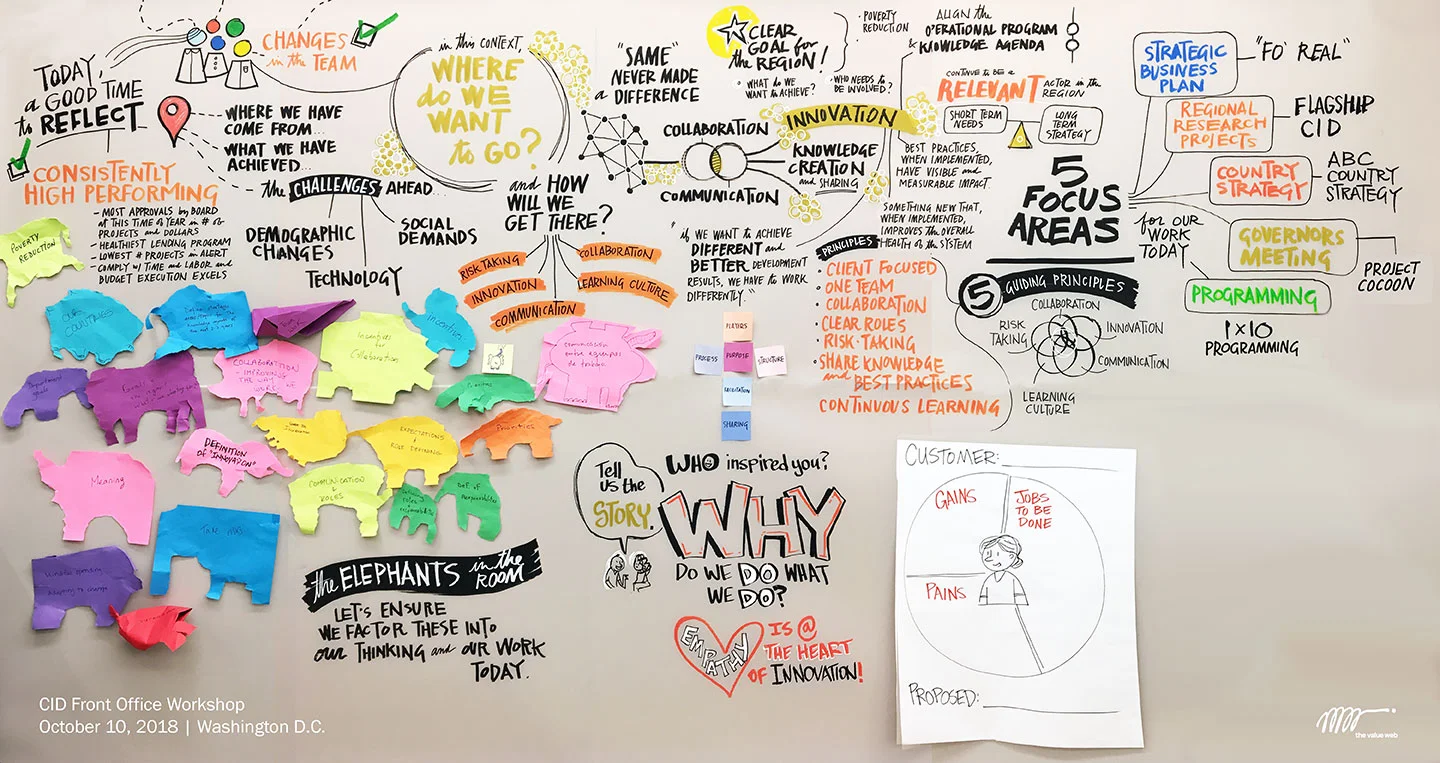 CHANGES
in the TEAM
TODAY,
a GOOD TIME
to REFLECT
WHERE WE HAVE
COME FROM...
WHAT WE HAVE
ACHIEVED...
CONSISTENTLY
HIGH PERFORMING
- MOST APPROVALS by BOARD
at THIS TIME of YEAR in # of
PROJECTS and DOLLARS
- HEALTHIEST LENDING PROGRAM
- LOWEST # PROJECTS in ALERT
- COMPLY w/ TIME and LABOR and
BUDGET EXECUTION EXCELS
the CHALLENGES AHEAD...
DEMOGRAPHIC
CHANGES
TECHNOLOGY
SOCIAL
DEMANDS
in this CONTEXT,
WHERE
do WE
WANT
to GO?
and HOW
WILL WE
GET THERE?
RISK TAKING
INNOVATION
COMMUNICATION
COLLABORATION
LEARNING CULTURE
"SAME"
NEVER MADE
a DIFFERENCE
CLEAR
GOAL for
the REGION!
• POVERTY
REDUCTION
• WHAT do WE
WANT to ACHIEVE?
• WHO NEEDS to
BE INVOLVED?
COLLABORATION
COMMUNICATION
INNOVATION
KNOWLEDGE
CREATION
and SHARING
"if WE WANT to ACHIEVE
DIFFERENT and
BETTER DEVELOPMENT
RESULTS, WE HAVE to WORK
DIFFERENTLY."
ALIGN the
OPERATIONAL PROGRAM
& KNOWLEDGE AGENDA
CONTINUE to BE a
RELEVANT ACTOR in the
REGION
SHORT TERM
NEEDS
LONG
TERM
STRATEGY
BEST PRACTICES,
WHEN IMPLEMENTED,
HAVE VISIBLE and
MEASURABLE IMPACT.
SOMETHING NEW THAT,
WHEN IMPLEMENTED,
IMPROVES the OVERALL
HEALTH of the SYSTEM
PRINCIPLES
• CLIENT FOCUSED
• ONE TEAM
• COLLABORATION
• CLEAR ROLES
• RISK-TAKING
• SHARE KNOWLEDGE
and BEST PRACTICES
CONTINUOUS LEARNING
5
FOCUS
AREAS
for OUR
WORK
TODAY
STRATEGIC
BUSINESS
PLAN
"FO' REAL"
REGIONAL
RESEARCH
PROJECTS
FLAGSHIP
CID
COUNTRY
STRATEGY
ABC
COUNTRY
STRATEGY
GOVERNORS
MEETING
PROJECT
COCOON
PROGRAMMING
1x10
PROGRAMMING
5 GUIDING PRINCIPLES
COLLABORATION
RISK
TAKING
INNOVATION
COMMUNICATION
LEARNING
CULTURE
POVERTY
REDUCTION
OUR
COUNTRIES
Incentives
Incentives
for
Collaborations
COLLABORATION
- IMPROVING
THE WAY
WORK WE
Department
goals
comunicación
entre equipos
de trabajo.
Priorities
EXPECTATIONS
&
ROLE DEFINING
Priorities
DEFINITION
OF "INNOVATION"
Meaning
COMMUNICATION
&
ROLES
PLAYERS
PROCESS
PURPOSE
STRUCTURE
SHARING
the ELEPHANTS in the
ROOM
LET'S ENSURE
WE FACTOR THESE INTO
our THINKING and OUR WORK
TODAY.
Tell
us the
STORY.
WHO inspired you?
WHY
DO WE DO WHAT
WE DO?
EMPATHY
IS @
THE HEART
OF INNOVATION!
CUSTOMER:
GAINS
JOBS
TO BE
DONE
PAINS
PROPOSED:
CID Front Office Workshop
October 10, 2018 | Washington D.C.
the value web